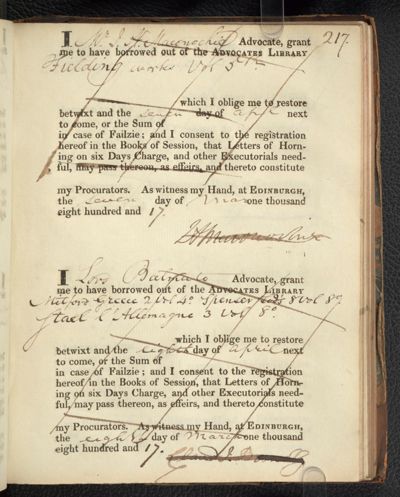 217.
I Mr J. H. Maconochie Advocate, grant
me to have borrowed out of the ADVOCATES LIBRARY
Fielding works Vol 5th
which I oblige me to restore
betwixt and the seven day of april next
to come, or the Sum of
in case of Failzie; and I consent to the registration
hereof in the Books of Session, that Letters of Horn-
ing on six Days Charge, and other Executorials need-
ful, may pass thereon, as effeirs, and thereto constitute
my Procurators. As witness my Hand, at EDINBURGH,
the seven day of March one thousand
eight hundred and 17.
I Lord Balmuto Advocate, grant
me to have borrowed out of the ADVOCATES LIBRARY
Mitford Greece 2 Vol 4o Spenser 8 Vol 8o
Stael l'Allemagne 3 Vol 8o
which I oblige me to restore
betwixt and the eighth day of april next
to come, or the Sum of
in case of Failzie; and I consent to the registration
hereof in the Books of Session, that Letters of Horn-
ing on six Days Charge, and other Executorials need-
ful, may pass thereon, as effeirs, and thereto constitute
my Procurators. As witness my Hand, at EDINBURGH,
the eighth day of March one thousand
eight hundred and 17.